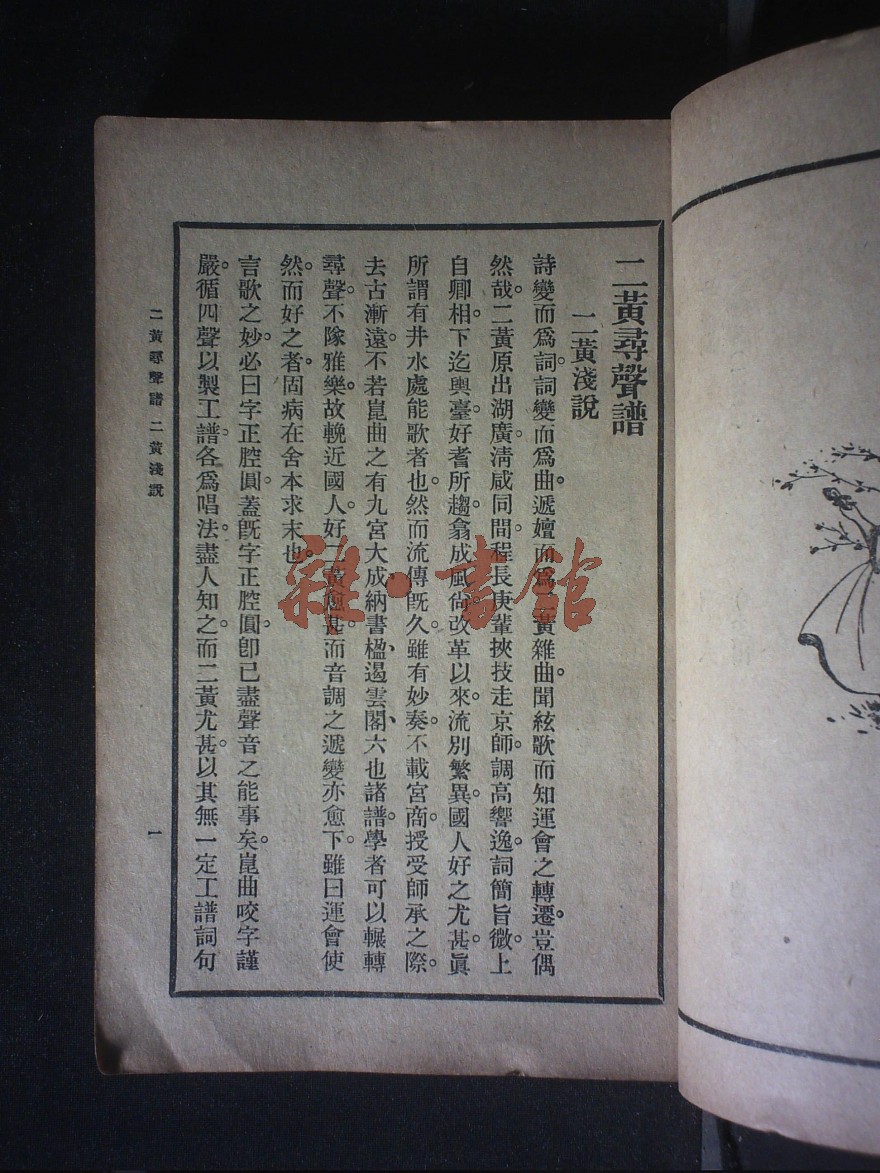 二黃尋聲譜
二黃淺說
詩變而爲詞。詞變而爲曲。遞嬗而爲二黃雜曲。聞絃歌而知運會之轉遷。豈偶
然哉。二黃原出湖廣。淸咸同間。程長庚輩挾技走京師。調高響逸。詞簡旨微。上
自卿相。下迄輿臺。好耆所趨。翕成風尙。改革以來。流別繁異。國人好之尤甚。眞
所謂有井水處能歌者也。然而流傳旣久。雖有妙奏。不載宮商。授受師承之際。
去古漸遠。不若崑曲之有九宮大成、納書楹、遏雲閣、六也諸譜。學者可以輾轉
尋聲。不隊雅樂。故輓近國人。好二黃愈甚。而音調之遞變亦愈下。雖曰運會使
然。而好之者。固病在舍本求末也。
言歌之妙。必曰字正腔圓。蓋旣字正腔圓。卽已盡聲音之能事矣。崑曲咬字謹
嚴。循四聲以製工譜。各爲唱法。盡人知之。而二黃尤甚。以其無一定工譜。詞句
二黃尋聲譜 二黃淺說
一
雜·書館